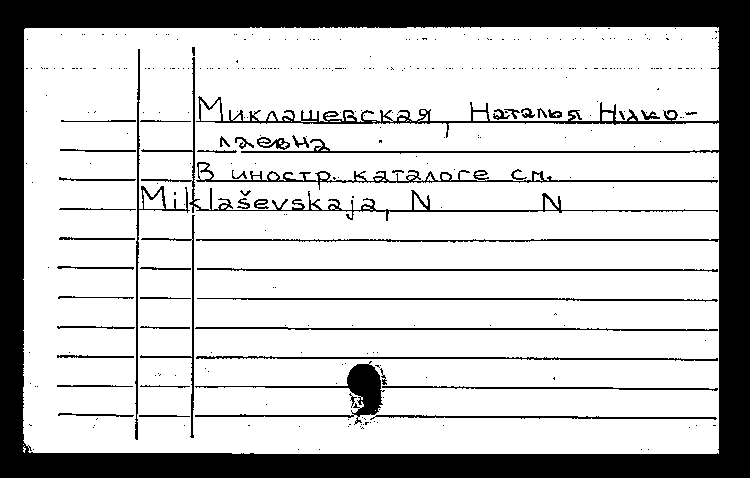 Миклашевская, Наталья Нико-
лаевна
В иностр. каталоге см.
Miklaševskaja, N N